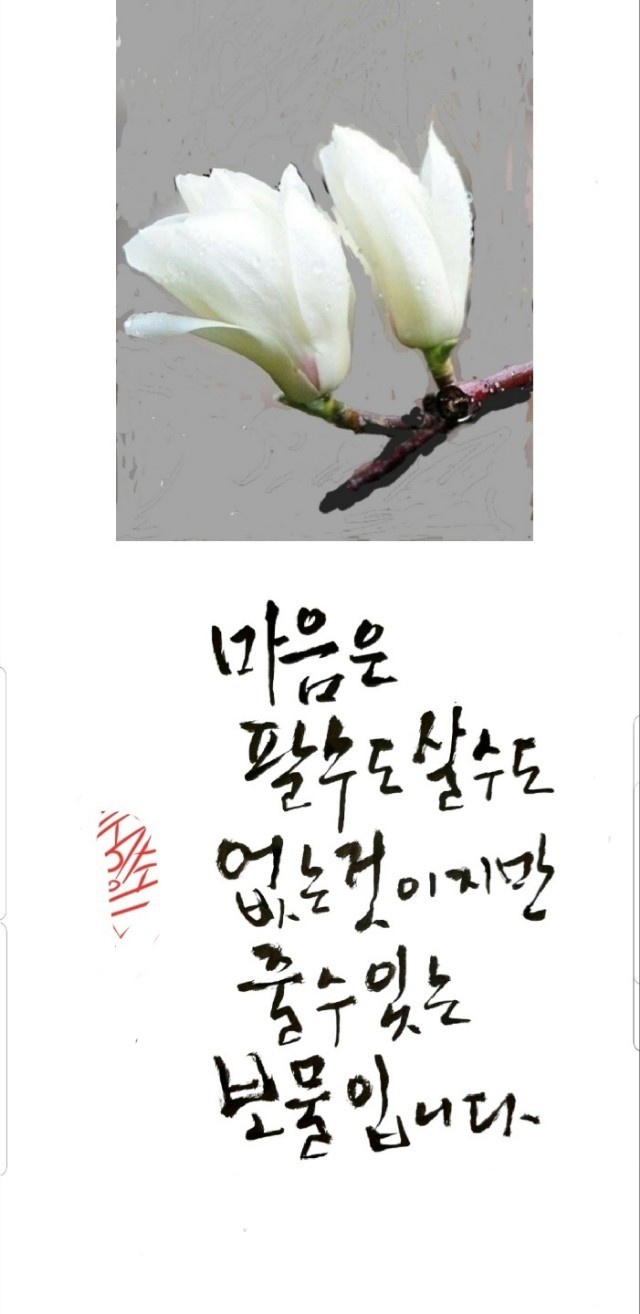 마음은
팔수도 살수도
없는것이지만
줄수있는
보물입니다.